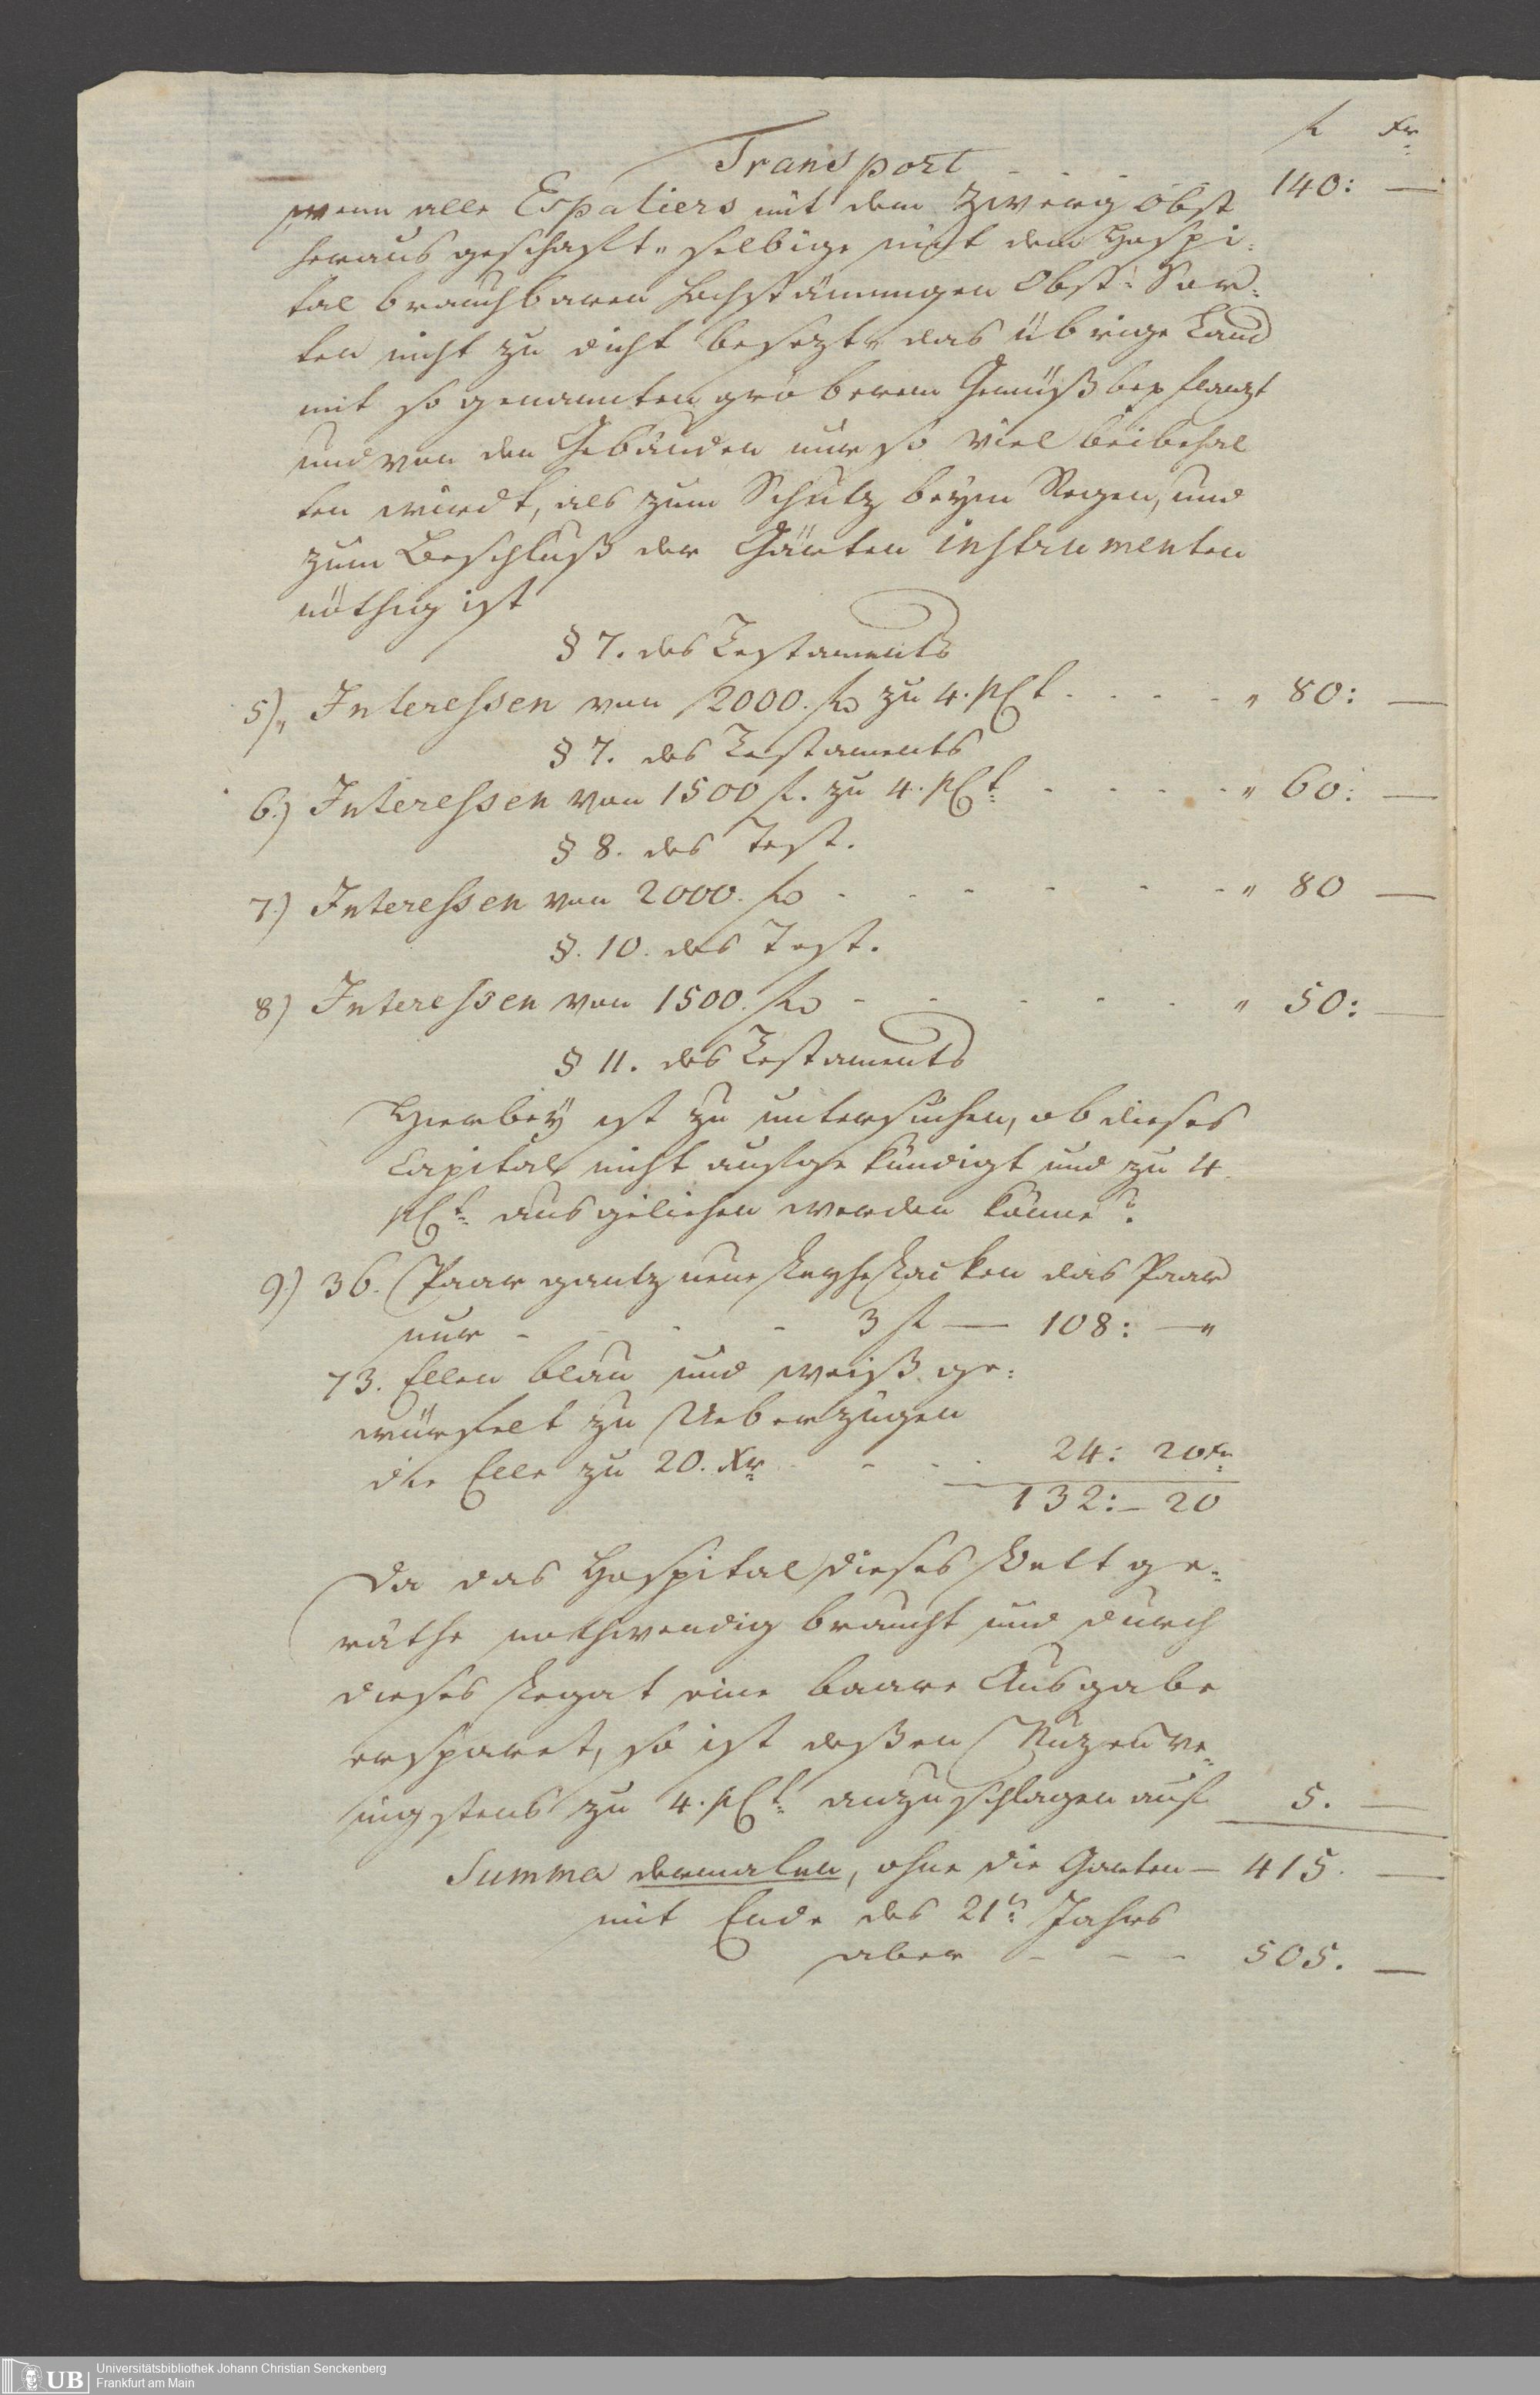 fl Xr
Transport - - - 140: —
wenn alle Espaliers mit dem Zwerg Obst
heraus geschaft, selbige mit dem Hospi:
tal brauchbaren hochstämmigen Obst: Sor:
ten nicht zu dicht besezt, das übrige Land
mit so genannten gröberem Gemüß bepflanzt
und von den Gebäuden nur so viel beibehal
ten wirdt, als zum Schutz beym Regen, und
zum Beschluß der Gärten instrumenten
nöthig ist
§ 7. des Testaments
5) Interessen von 2000. fl zu 4. pCt - - - - " 80: —
§ 7. des Testaments
6.) Interessen von 1500 fl. zu 4. pCt - - - - " 60: —
§ 8. des Test.
7.) Interessen von 2000. fl - - - - - - " 80 —
§. 10. des Test.
8) Interessen von 1500. fl - - - - - " 50: —
§ 11. des Testaments
Hierbey ist zu untersuchen, ob dieses
Capital nicht aufgekündigt und zu 4.
pCt ausgeliehen werden könne?
9.) 36. Paar gantz neue das Paar
nur - - - - 3 fl — 108: — "
73. Ellen blau und weiß ge:
würfelt zu Ueberzügen
die Elle zu 20. Xr - - - 24: 20 Xr
132: - 20
Da das Hospital dieses Bettge:
räthe nothwendig braucht und durch
dieses Legat eine baare Ausgabe
ersparet, so ist deßen Nuzen we:
nigstens zu 4. pCt anzuschlagen auf 5. —
Summa dermalen, ohne die Garten — 415. —
mit Ende des 21ts Jahrs
aber - - - 505. —
UB
Universitätsbibliothek Johann Christian Senckenberg
Frankfurt am Main